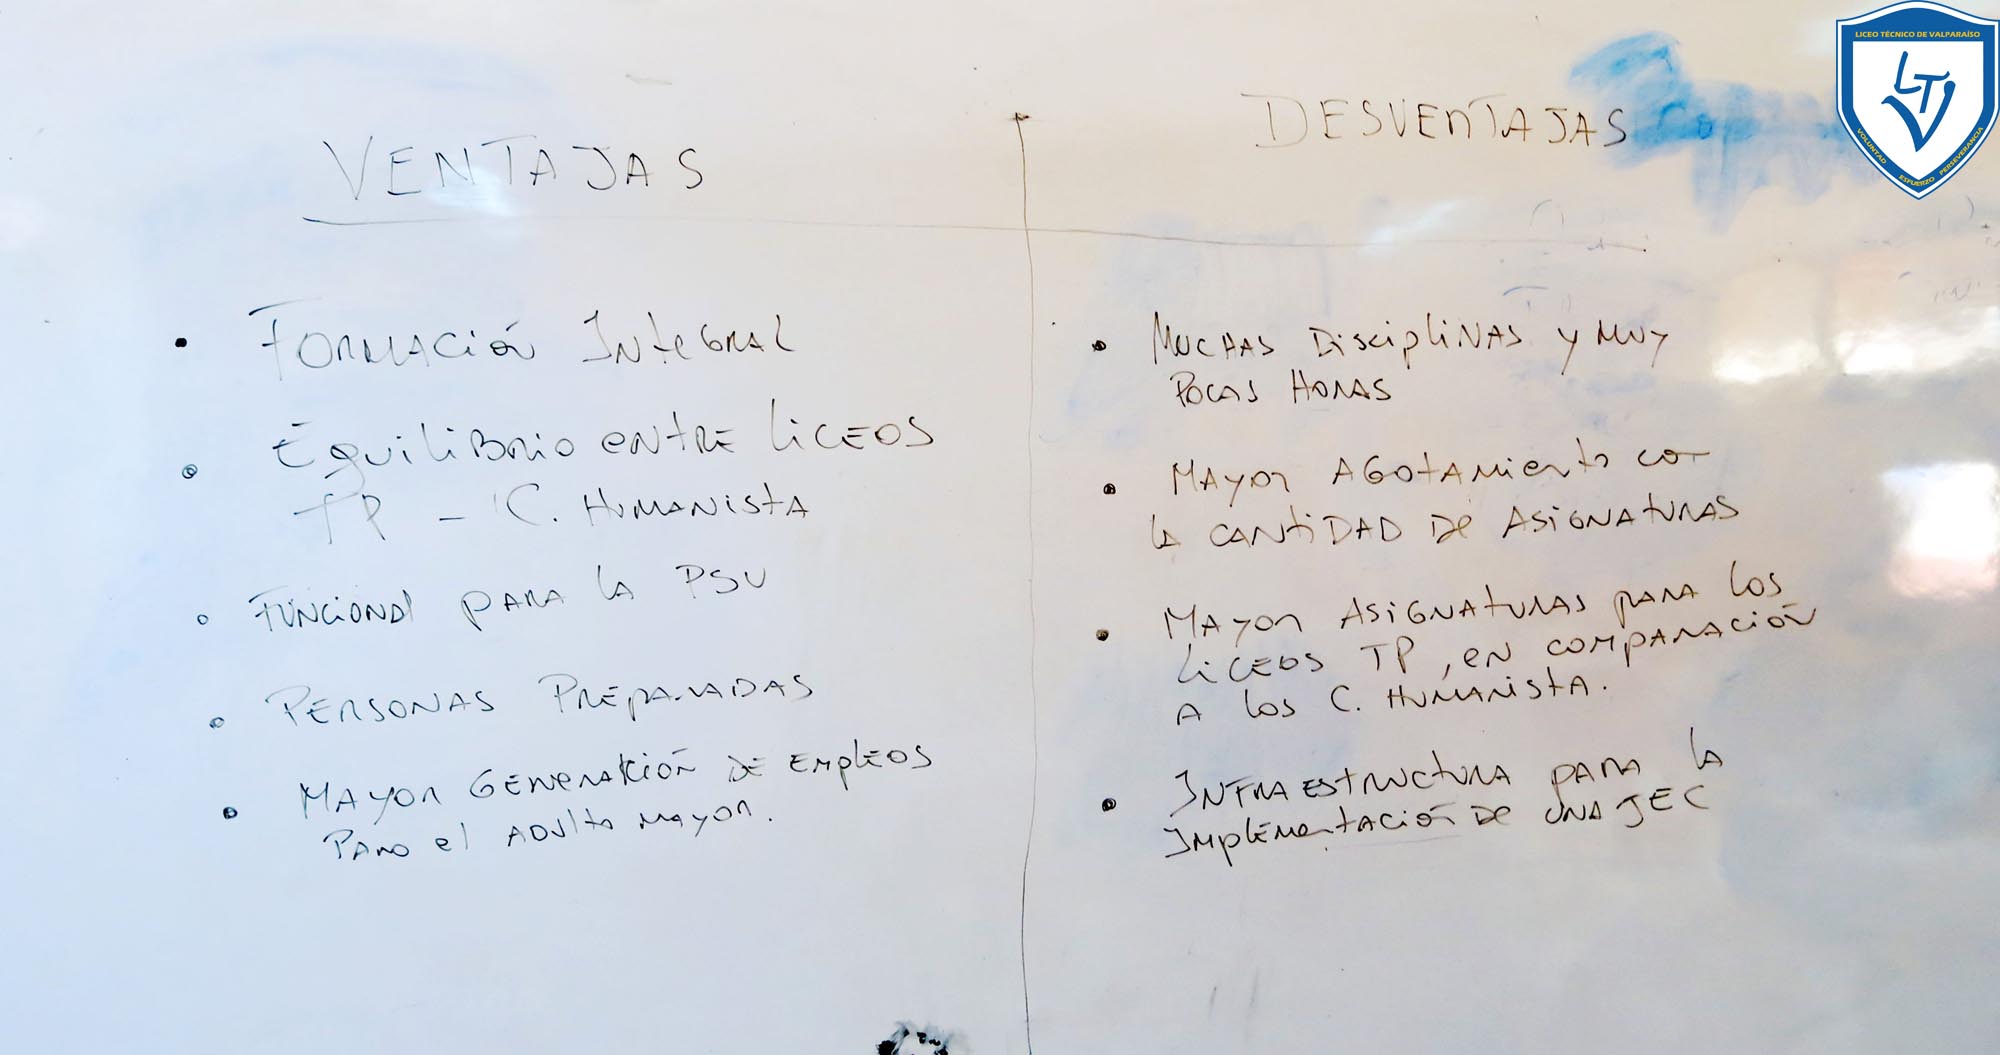 VENTAJAS
• Formación Integral
• Equilibrio entre liceos
TP - C. Humanista
• Funcional para la PSU
• Personas Preparadas
• Mayor Generación de empleos
Para el adulto mayor.
DESVENTAJAS
• Muchas Disciplinas y muy
pocas Horas
• Mayor Agotamiento con
la cantidad de asignaturas
• Mayor Asignaturas para los
liceos TP, en comparación
a los C. Humanista.
• Infraestructura para la
Implementación de una JEC
LICEO TÉCNICO DE VALPARAÍSO
LTV
VOLUNTAD
ESFUERZO
PERSEVERANCIA